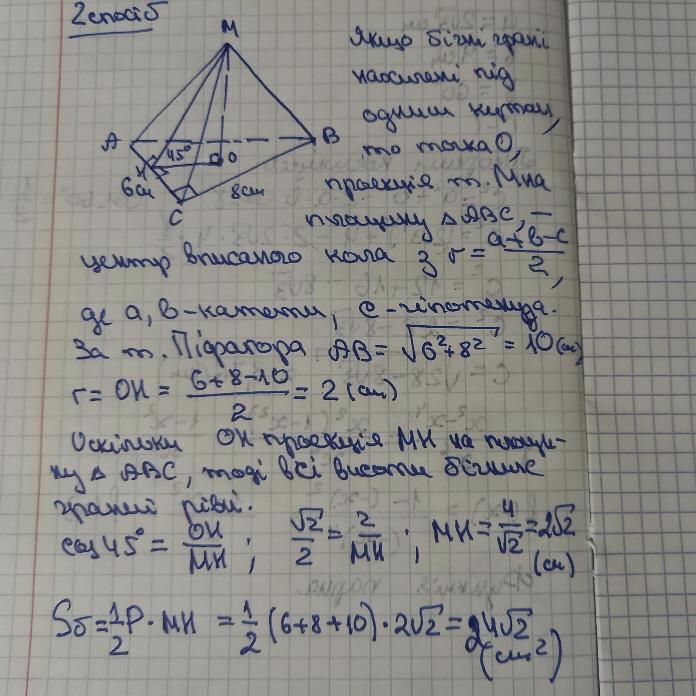 2 спосіб
M
A
B
C
H
O
45°
6см
8см
Якщо бічні грані
нахилені під
одним кутом,
то точка O,
проекція т. M на
площину △ ABC, —
центр вписаного кола з r = (a+b-c)/2,
де a, b - катети, c - гіпотенуза.
За т. Піфагора AB = √(6²+8²) = 10 (см)
r = OH = (6+8-10)/2 = 2 (см)
Оскільки OH проекція MH на площи-
ну △ ABC, тоді всі висоти бічних
граней рівні.
cos 45° = OH/MH ; √2/2 = 2/MH ; MH = 4/√2 = 2√2
(см)
Sб = 1/2 P · MH = 1/2 (6+8+10) · 2√2 = 24√2
(см²)